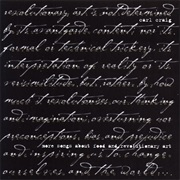 revolutionary art is not determined
carl craig
by its avant-garde content, nor its
formal or technical trickery, its
interpretation of reality or its
verisimilitude, but, rather, by how
much it revolutionizes our thinking
and imagination, overturning our
preconceptions, bias and prejudice
more songs about food and revolutionary art
and inspiring us to change
ourselves and the world...